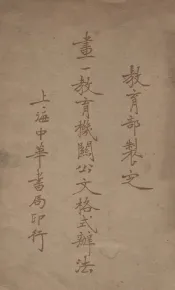 教育部製定
畫一教育機關公文格式辦法
上海中華書局印行